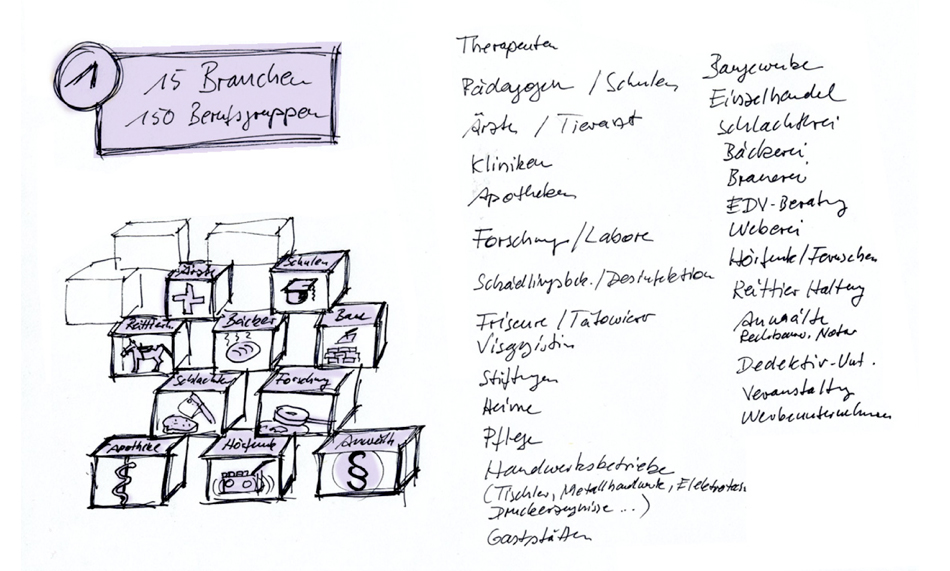 1
15 Branchen
150 Berufsgruppen
Ärzte
Schulen
Reittier
Bäcker
Bau
Schlachter
Forschung
Apotheke
Hörfunk
Anwält
§
Therapeuten
Pädagogen / Schulen
Ärzte / Tierarzt
Kliniken
Apotheken
Forschung / Labore
Schädlingsbek. / Desinfektion
Friseure / Tätowierer
Visagistin
Stiftungen
Heime
Pflege
Handwerksbetriebe
(Tischler, Metallhandwerk, Elektrotech.
Druckerzeugnisse ...)
Gaststätten
Baugewerbe
Einzelhandel
Schlachterei
Bäckerei
Brauerei
EDV-Beratung
Weberei
Hörfunk / Fernsehen
Reittier Haltung
Anwälte
Rechtsanw. Notar
Dedektiv-Unt.
Veranstaltung
Werbeunternehmen